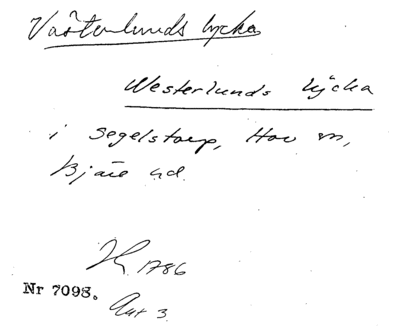 Västerlunds lycka
Westerlunds lycka
i Segelstorp, Hov sn,
Bjäre hd.
1786
Nr 7098.
Akt 3